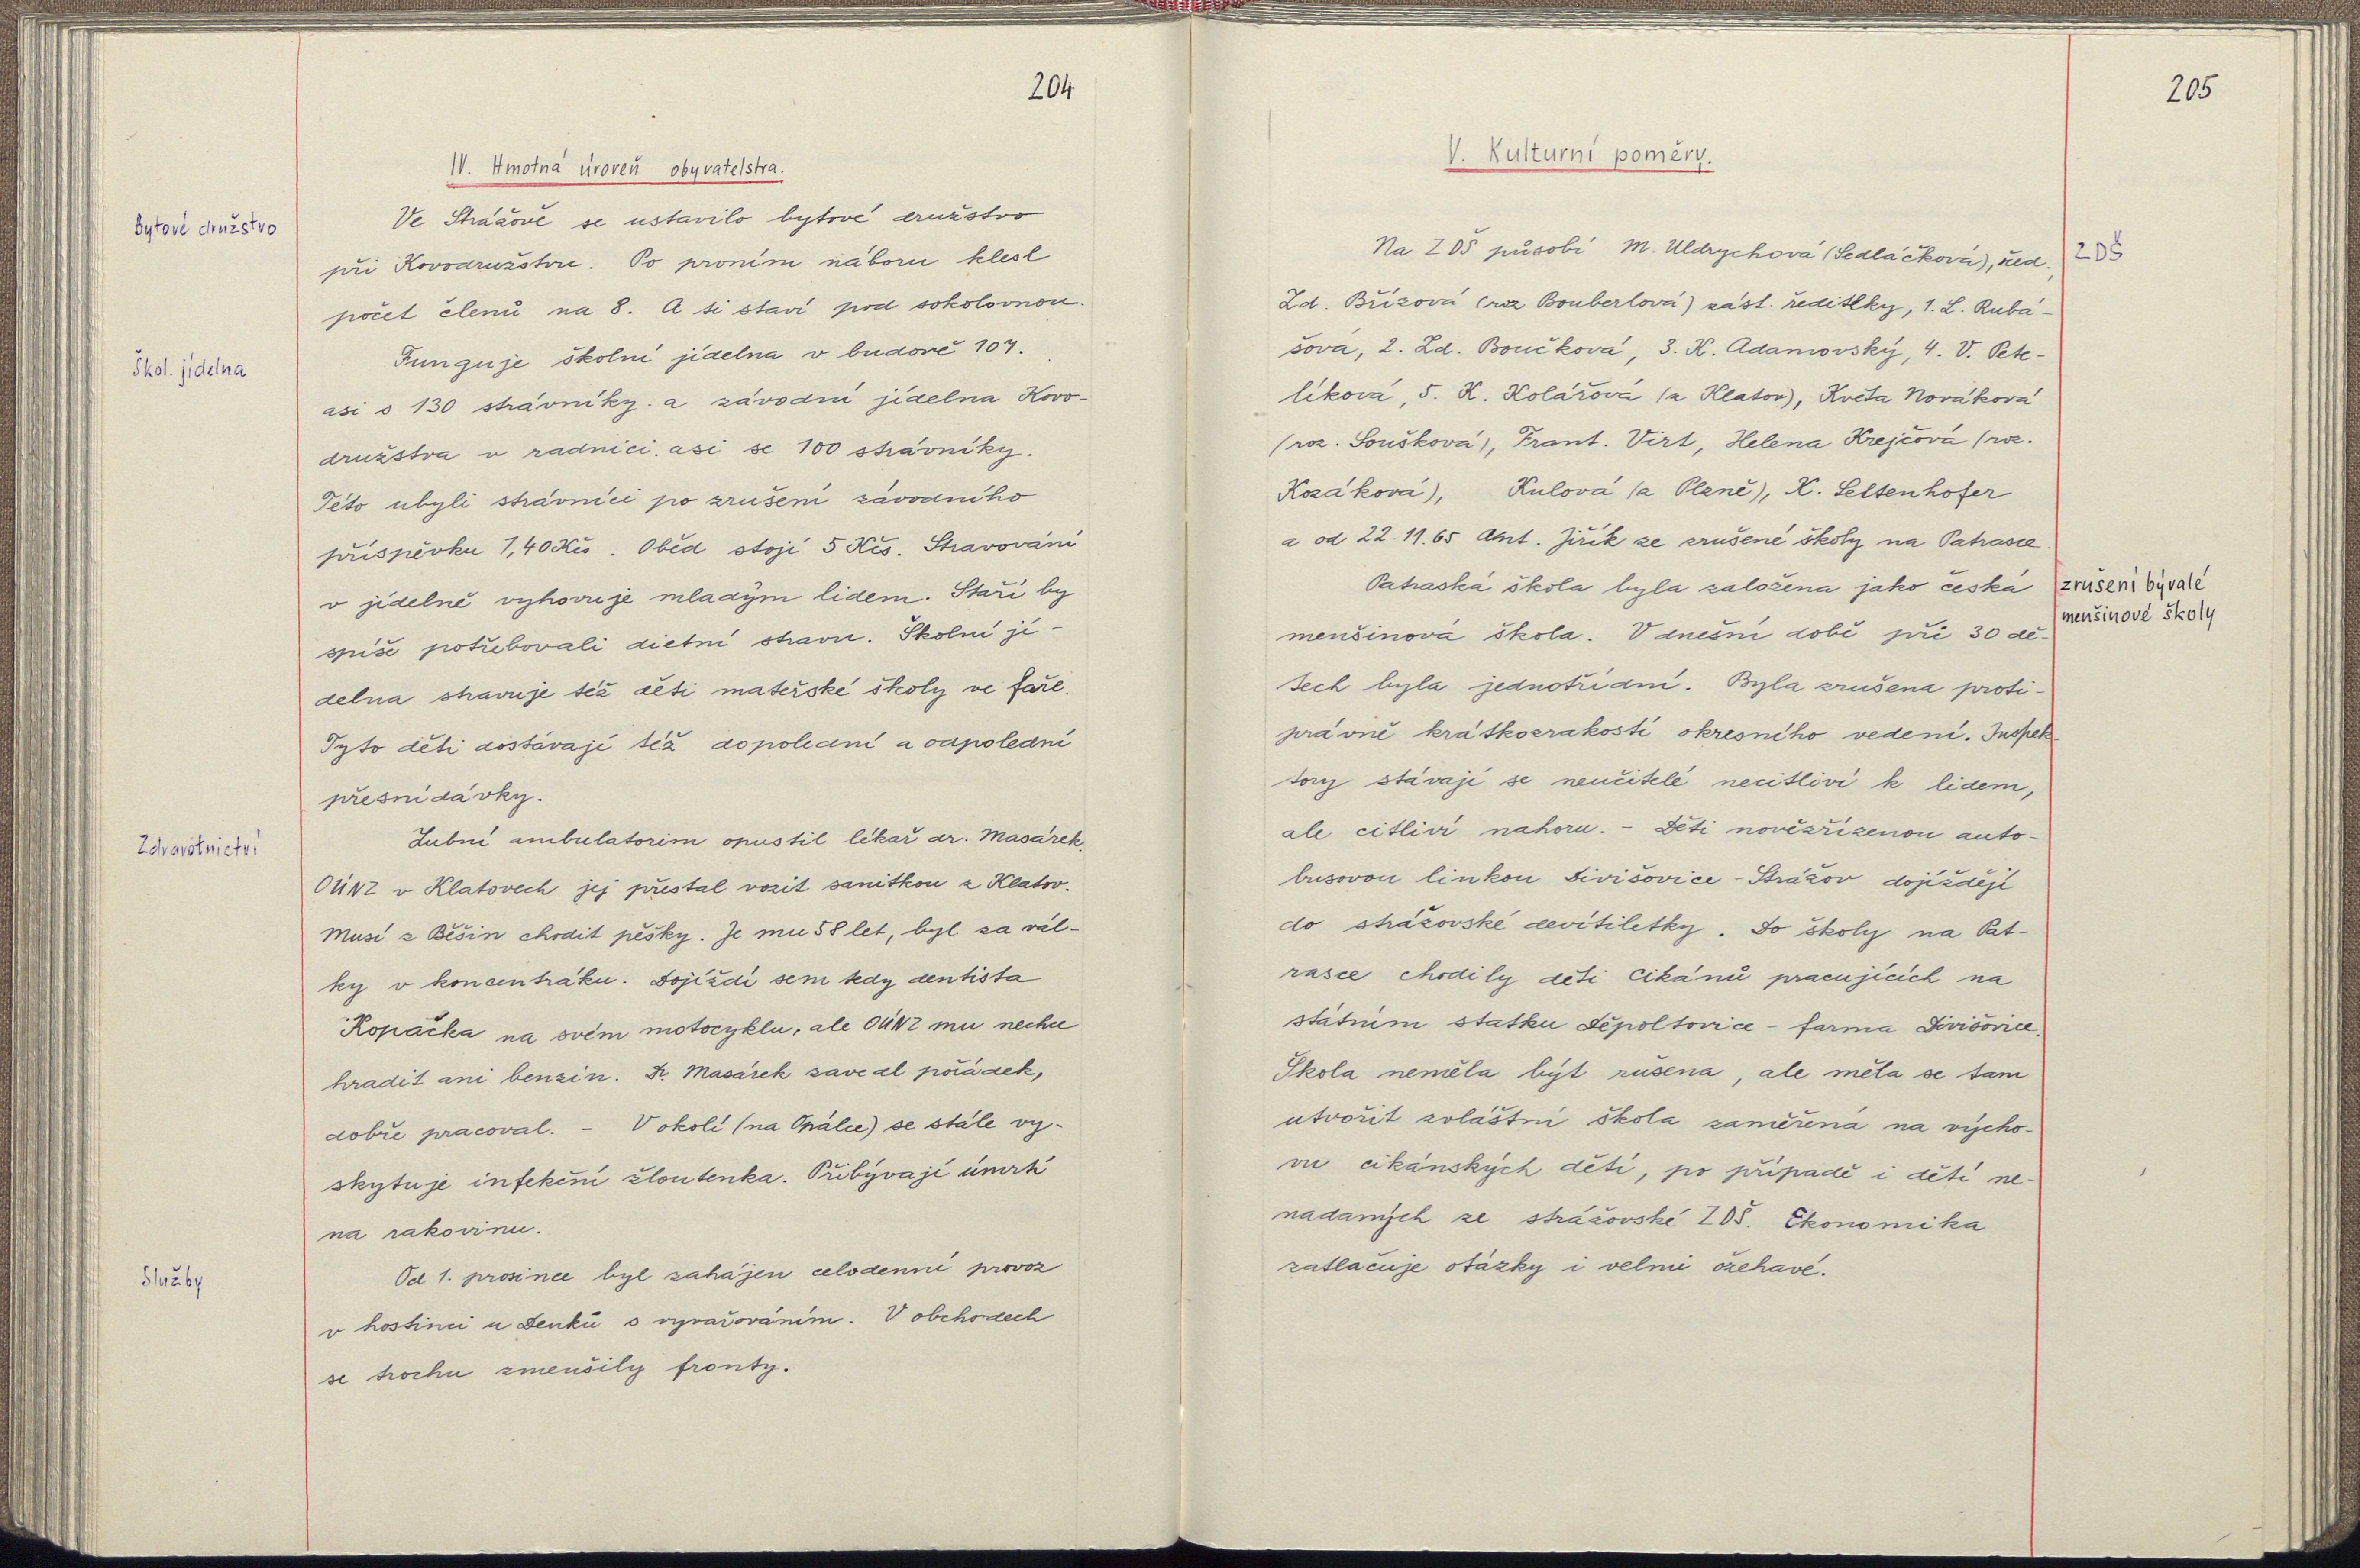 204
IV. Hmotná úroveň obyvatelstva.
Bytové družstvo
Ve Strážově se ustavilo bytové družstvo
při Kovodružstvu. Po prvním náboru klesl
počet členů na 8. A ti staví pod sokolovnou.
Škol. jídelna
Funguje školní jídelna v budově 107.
asi s 130 strávníky. a závodní jídelna Kovo-
družstva v radnici. asi se 100 strávníky.
Této ubyli strávníci po zrušení závodního
příspěvku 1,40 Kčs. Oběd stojí 5 Kčs. Stravování
v jídelně vyhovuje mladým lidem. Staří by
spíše potřebovali dietní stravu. Školní jí-
delna stravuje též děti mateřské školy ve faře.
Tyto děti dostávají též dopolední a odpolední
přesnídávky.
Zdravotnictví
Zubní ambulatorim opustil lékař dr. Masárek.
OÚNZ v Klatovech jej přestal vozit sanitkou z Klatov.
Musí z Běšin chodit pěšky. Je mu 58 let, byl za vál-
ky v koncentráku. Dojíždí sem tedy dentista
Kopačka na svém motocyklu, ale OÚNZ mu nechce
hradit ani benzin. Dr. Masárek zavedl pořádek,
dobře pracoval. - V okolí (na Opálce) se stále vy-
skytuje infekční žloutenka. Přibývají úmrtí
na rakovinu.
Služby
Od 1. prosince byl zahájen celodenní provoz
v hostinci u Denků s vyvařováním. V obchodech
se trochu zmenšily fronty.
205
V. Kulturní poměry.
ZDŠ
Na ZDŠ působí M. Uldrychová (Sedláčková), řed.,
Zd. Břízová (roz Bouberlová) zást. ředitelky, 1. L. Rubá-
šová, 2. Zd. Boučková, 3. K. Adamovský, 4. V. Pete-
líková, 5. K. Kolářová (z Klatov), Květa Nováková
(roz. Soušková), Frant. Virt, Helena Krejčová (roz.
Kozáková), Kulová (z Plzně), K. Seltenhofer
a od 22. 11. 65 Ant. Jiřík ze zrušené školy na Patrasce.
zrušení bývalé
menšinové školy
Patraská škola byla založena jako česká
menšinová škola. V dnešní době při 30 dě-
tech byla jednotřídní. Byla zrušena proti-
právně krátkozrakostí okresního vedení. Inspek-
tory stávají se neučitelé necitliví k lidem,
ale citliví nahoru. - Děti novězřízenou auto-
busovou linkou Divišovice - Strážov dojíždějí
do strážovské devítiletky. Do školy na Pat-
rasce chodily děti Cikánů pracujících na
státním statku Děpoltovice - farma Divišovice.
Škola neměla být rušena, ale měla se tam
utvořit zvláštní škola zaměřená na výcho-
vu cikánských dětí, po případě i dětí ne-
nadaných ze strážovské ZDŠ. Ekonomika
zatlačuje otázky i velmi ožehavé.